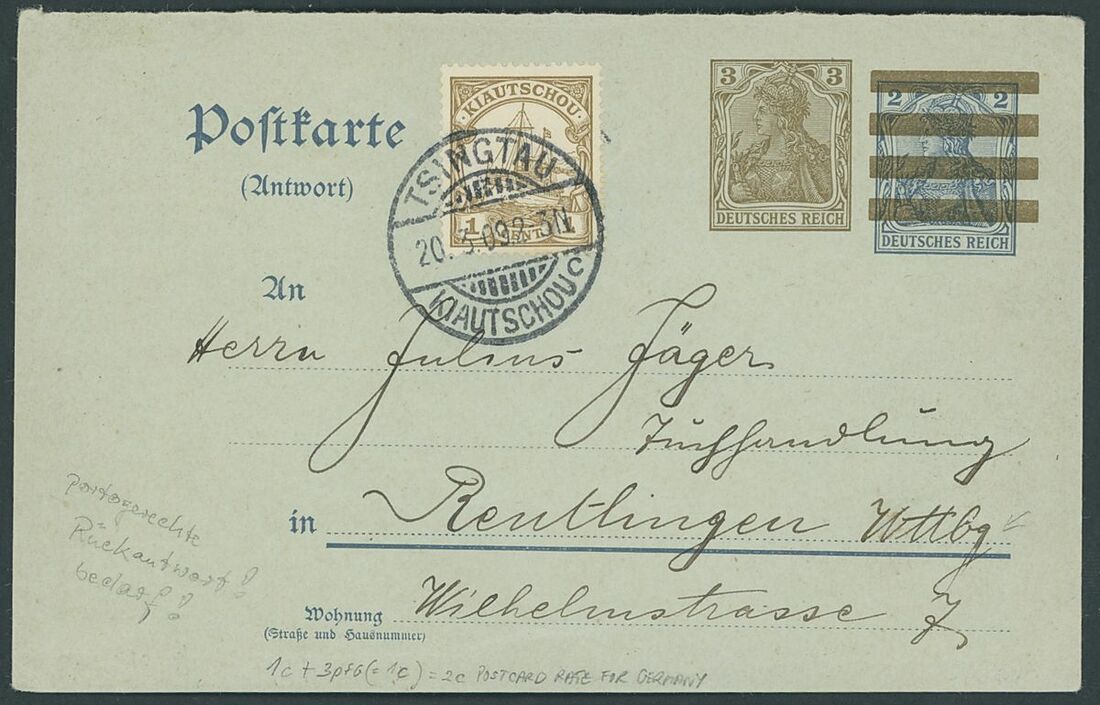 Postkarte
(Antwort)
KIAUTSCHOU
1
TSINGTAU
20. 3. 09 2-3N
KIAUTSCHOU c
3 3
DEUTSCHES REICH
2 2
DEUTSCHES REICH
An
Herrn Julius Jäger
Tuchhandlung
in Reutlingen Wttbg
Wohnung
(Straße und Hausnummer)
Wilhelmstrasse 7
portogerechte
Rückantwort!
bedarf!
1c + 3pfG (= 1c) = 2c POSTCARD RATE FOR GERMANY